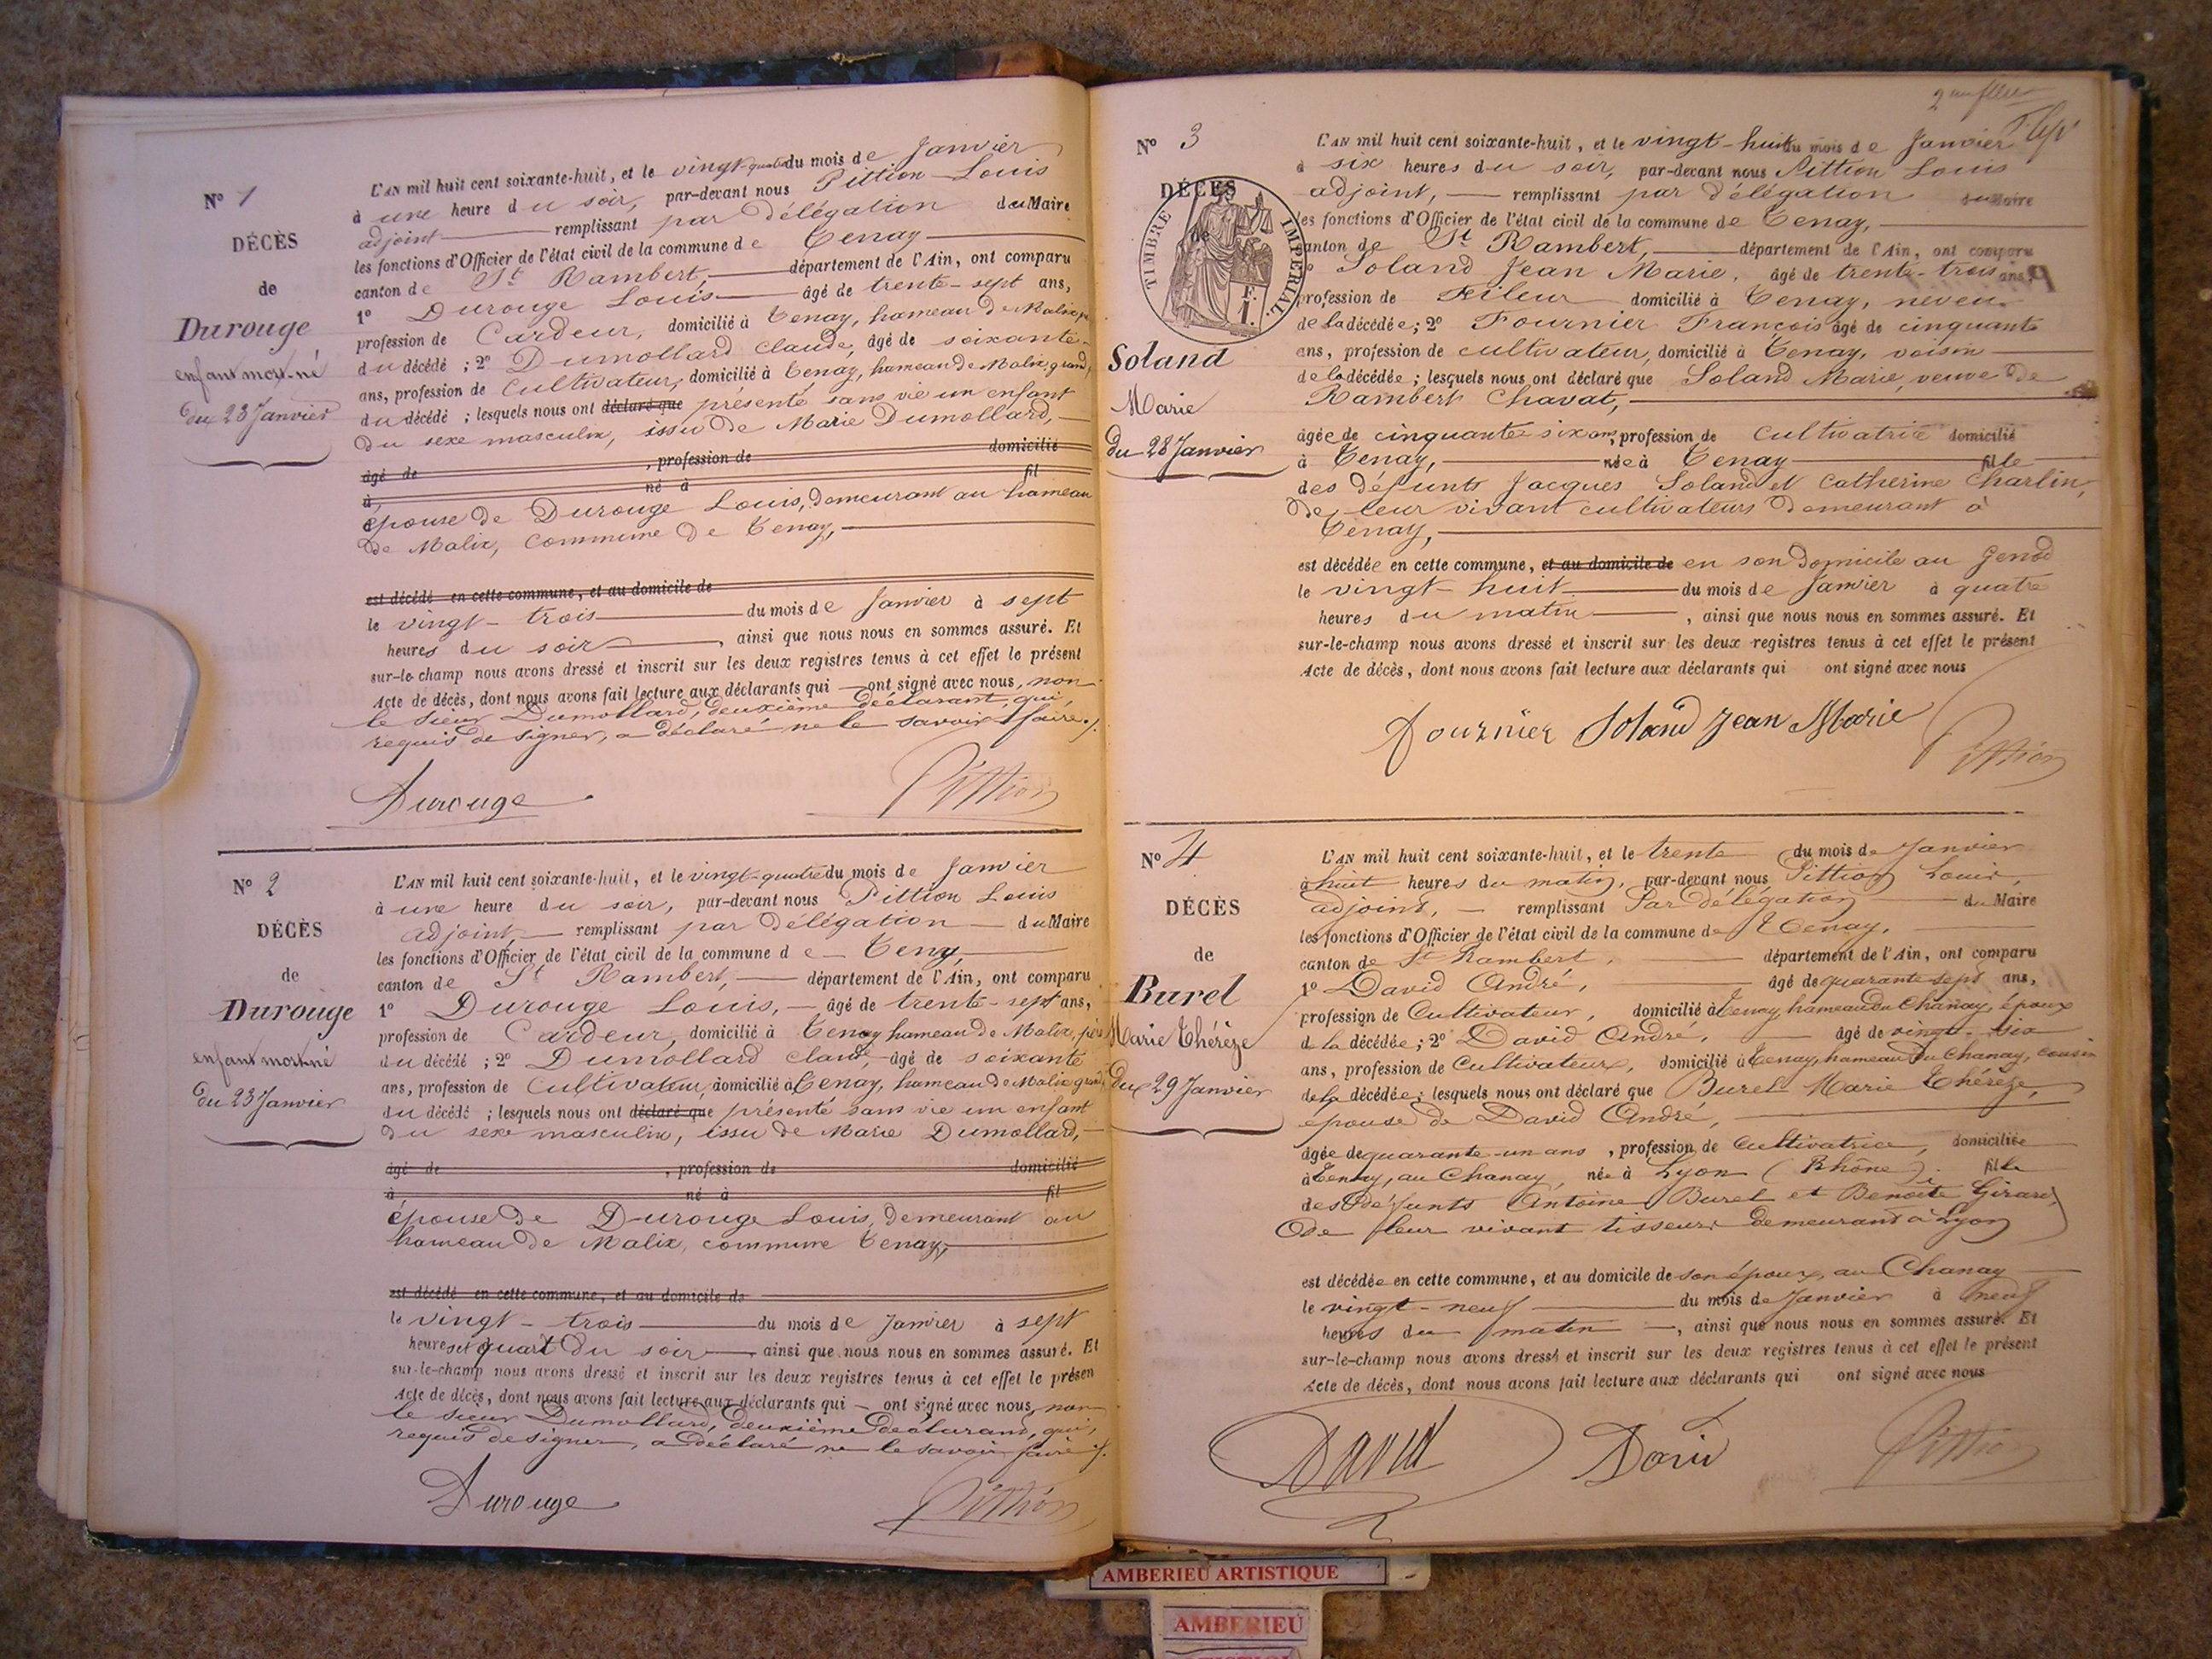 N° 1
DÉCÈS
de
Durouge
enfant mort-né
du 23 Janvier
L'AN mil huit cent soixante-huit, et le vingt-quatre du mois de Janvier
à une heure du soir, par-devant nous Pittion Louis
adjoint remplissant par délégation du Maire
les fonctions d'Officier de l'état civil de la commune de Tenay
canton de St Rambert, département de l'Ain, ont comparu
1° Durouge Louis âgé de trente-sept ans,
profession de Cardeur, domicilié à Tenay, hameau de Malix,
du décédé ; 2° Dumollard Claude, âgé de soixante-
ans, profession de Cultivateur, domicilié à Tenay, hameau de Malix, grand
du décédé ; lesquels nous ont déclaré que présenté sans vie un enfant
du sexe masculin, issu de Marie Dumollard,
âgé de , profession de domicilié
à né à fil
épouse de Durouge Louis, demeurant au hameau
de Malix, commune de Tenay,
est décédé en cette commune, et au domicile de
le vingt-trois du mois de Janvier à sept
heures du soir, ainsi que nous nous en sommes assuré. Et
sur-le-champ nous avons dressé et inscrit sur les deux registres tenus à cet effet le présent
Acte de décès, dont nous avons fait lecture aux déclarants qui ont signé avec nous, non
le sieur Dumollard, deuxième déclarant, qui,
requis de signer, a déclaré ne le savoir faire ./.
Durouge Pittion
N° 2
DÉCÈS
de
Durouge
enfant mort né
du 23 Janvier
L'AN mil huit cent soixante-huit, et le vingt-quatre du mois de Janvier
à une heure du soir, par-devant nous Pittion Louis
adjoint, remplissant par délégation du Maire
les fonctions d'Officier de l'état civil de la commune de Tenay,
canton de St Rambert, département de l'Ain, ont comparu
1° Durouge Louis, âgé de trente-sept ans,
profession de Cardeur, domicilié à Tenay hameau de Malix, père
du décédé ; 2° Dumollard Claude, âgé de soixante
ans, profession de Cultivateur, domicilié à Tenay, hameau de Malix grand
du décédé ; lesquels nous ont déclaré que présenté sans vie un enfant
du sexe masculin, issu de Marie Dumollard,
âgé de , profession de domicilié
à né à fil
épouse de Durouge Louis, demeurant au
hameau de Malix, commune Tenay,
est décédé en cette commune, et au domicile de
le vingt-trois du mois de Janvier à sept
heures et quart du soir, ainsi que nous nous en sommes assuré. Et
sur-le-champ nous avons dressé et inscrit sur les deux registres tenus à cet effet le présen
Acte de décès, dont nous avons fait lecture aux déclarants qui ont signé avec nous, non
le sieur Dumollard, deuxième déclarant, qui,
requis de signer, a déclaré ne le savoir faire ./.
Durouge Pittion
N° 3
DÉCÈS
de
TIMBRE IMPÉRIAL
Soland
Marie
du 28 Janvier
L'AN mil huit cent soixante-huit, et le vingt-huit du mois de Janvier
à six heures du soir, par-devant nous Pittion Louis
adjoint, remplissant par délégation du Maire
les fonctions d'Officier de l'état civil de la commune de Tenay,
canton de St Rambert, département de l'Ain, ont comparu
1° Soland Jean Marie, âgé de trente-trois ans,
profession de Fileur domicilié à Tenay, neveu
de la décédée ; 2° Fournier François âgé de cinquante
ans, profession de cultivateur, domicilié à Tenay, voisin
de la décédée ; lesquels nous ont déclaré que Soland Marie, veuve de
Rambert Chavat,
âgée de cinquante six ans, profession de Cultivatrice domicilié
à Tenay, née à Tenay fille
des défunts Jacques Soland et Catherine Charlin,
de leur vivant cultivateurs demeurant à
Tenay,
est décédée en cette commune, et au domicile de en son domicile au Genod
le vingt-huit du mois de Janvier à quatre
heures du matin, ainsi que nous nous en sommes assuré. Et
sur-le-champ nous avons dressé et inscrit sur les deux registres tenus à cet effet le présent
Acte de décès, dont nous avons fait lecture aux déclarants qui ont signé avec nous
Fournier Soland Jean Marie
Pittion
N° 4
DÉCÈS
de
Burel
Marie Thérèze
du 29 Janvier
L'AN mil huit cent soixante-huit, et le trente du mois de Janvier
à huit heures du matin, par-devant nous Pittion Louis,
adjoint, remplissant Par délégation du Maire
les fonctions d'Officier de l'état civil de la commune de Tenay,
canton de St Rambert, département de l'Ain, ont comparu
1° David André, âgé de quarante sept ans,
profession de Cultivateur, domicilié à Tenay, hameau du Chanay, époux
de la décédée ; 2° David André, âgé de vingt-six
ans, profession de Cultivateur, domicilié à Tenay, hameau du Chanay, cousin
de la décédée ; lesquels nous ont déclaré que Burel Marie Thérèze,
épouse de David André,
âgée de quarante-un ans, profession de Cultivatrice, domiciliée
à Tenay, au Chanay, née à Lyon (Rhône), fille
des défunts Antoine Burel et Benoite Girard,
de leur vivant tisseurs demeurant à Lyon
est décédée en cette commune, et au domicile de son époux, au Chanay
le vingt-neuf du mois de Janvier à neuf
heures du matin, ainsi que nous nous en sommes assuré. Et
sur-le-champ nous avons dressé et inscrit sur les deux registres tenus à cet effet le présent
Acte de décès, dont nous avons fait lecture aux déclarants qui ont signé avec nous
David David Pittion
AMBERIEU ARTISTIQUE
AMBERIEU